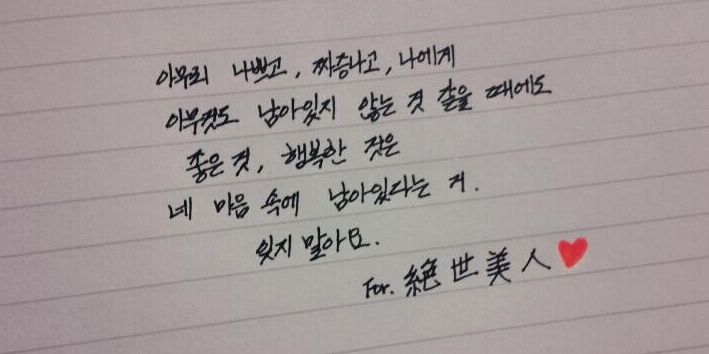 아무리 나쁘고, 짜증나고, 나에게
아무것도 남아있지 않는 것 같을 때에도
좋은 것, 행복한 것은
네 마음 속에 남아있다는 거.
잊지 말아요.
For. 絕世美人